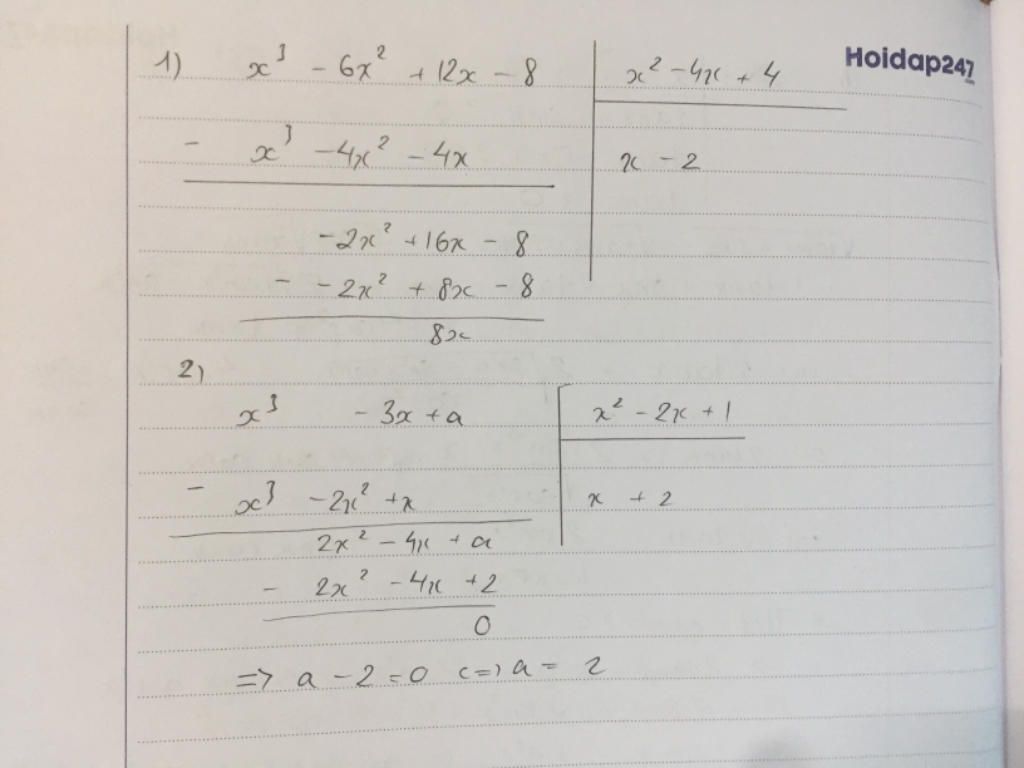 Hoidap247
1) x³ - 6x² + 12x - 8 | x² - 4x + 4
- x³ - 4x² - 4x | x - 2
- 2x² + 16x - 8
- - 2x² + 8x - 8
8x
2)
x³ - 3x + a | x² - 2x + 1
- x³ - 2x² + x | x + 2
2x² - 4x + a
- 2x² - 4x + 2
0
=> a - 2 = 0 <=> a = 2